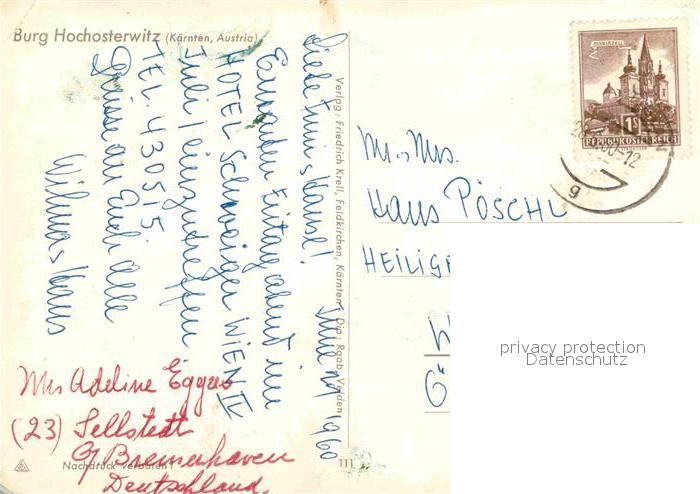 Burg Hochosterwitz (Kärnten, Austria)
Juni 29 1960
Liebe Fini & Hansl!
Erwarten Freitag abend im
HOTEL Schweiger WIEN IV
Juli 1 einzutreffen
TEL. 430515
Grüsse an Euch alle
Wilma & Hans
Verlag: Friedrich Krell, Feldkirchen, Kärnten
Mr. & Mrs.
Hans PÖSCHL
HEILIGE
W
G
MARIAZELL
1S
REPUBLIK ÖSTERREICH
60-12
9
privacy protection
Datenschutz
Mrs Adeline Eggers
(23) Sellstedt
b/ Bremerhaven
Deutschland
Nachdruck verboten!
111